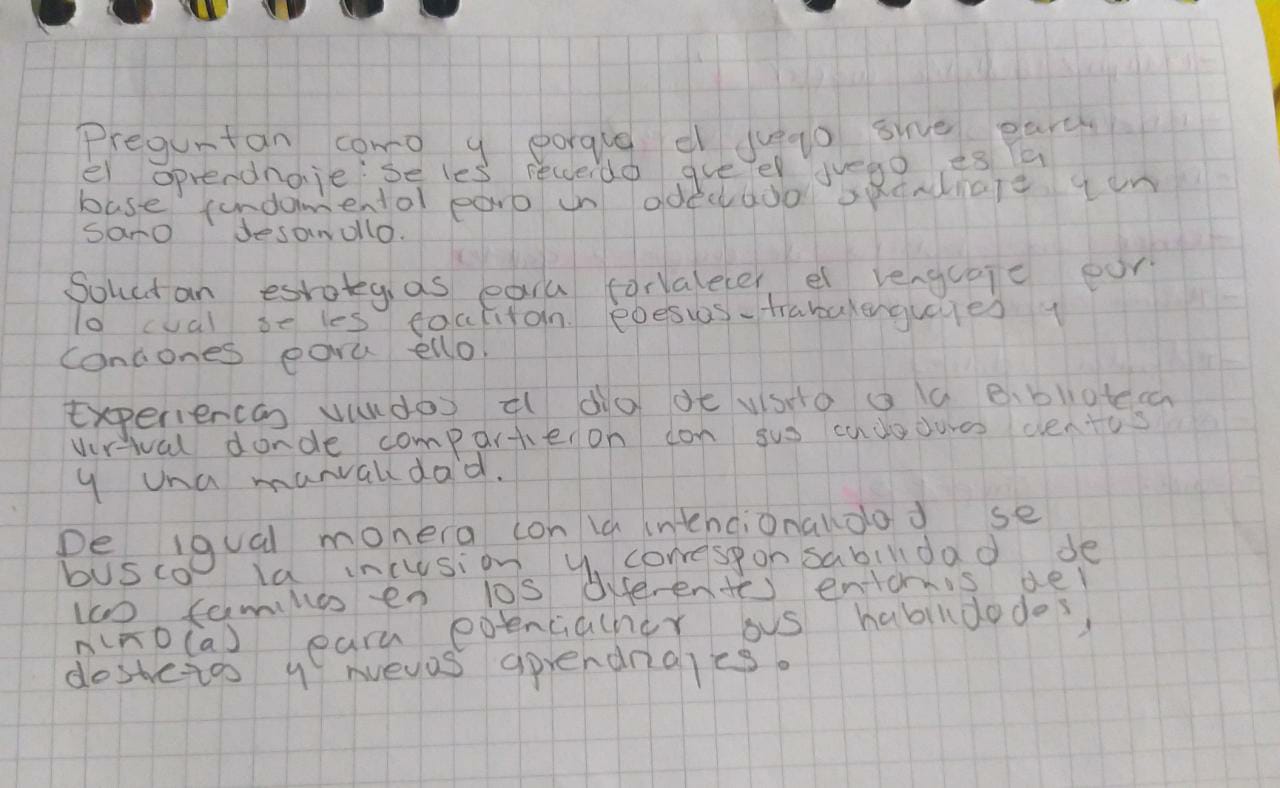 Preguntan como y porque el juego sirve para
el aprendizaje: se les recuerda que el juego es la
base fundamental para un adecuado aprendizaje y un
sano desarrollo.
Solicitan estrategias para fortalecer el lenguaje por
lo cual se les facilitan poesias - trabalenguajes y
canciones para ello.
Experiencias vividas el dia de visita a la Biblioteca
virtual donde compartieron con sus cuidadores cuentos
y una manualidad.
De igual manera con la intencionalidad se
busco la inclusion y corresponsabilidad de
las familias en los diferentes entornos del
niño(a) para potencializar sus habilidades,
destrezas y nuevos aprendizajes.